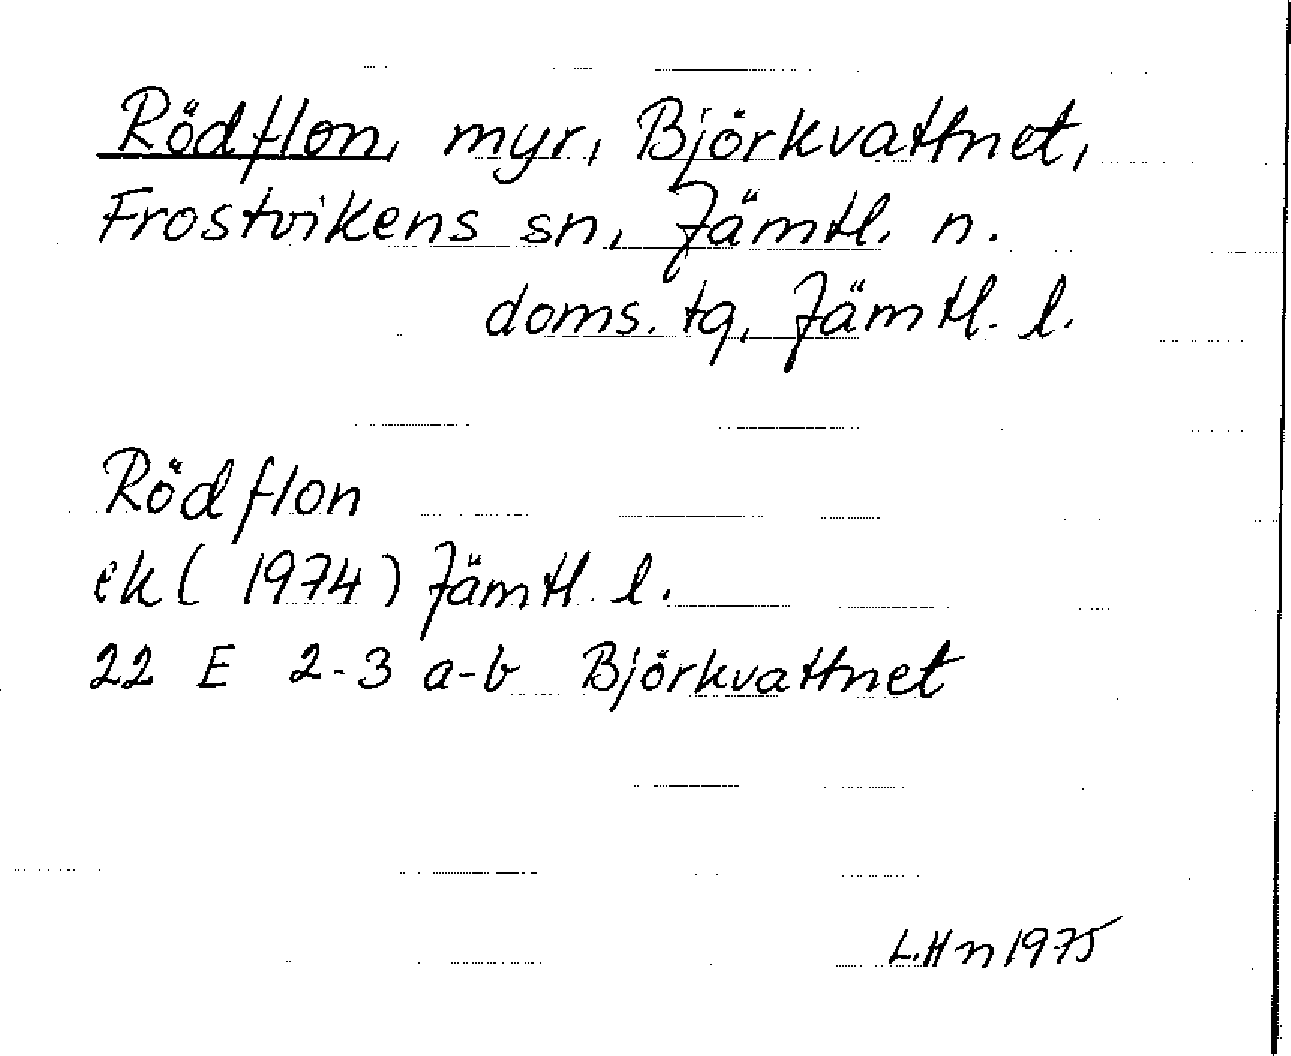 Rödflon, myr, Björkvattnet,
Frostvikens sn, Jämtl. n.
doms. tg, Jämtl. l.
Rödflon
ek (1974) Jämtl. l.
22 E 2-3 a-b Björkvattnet
L.Hn 1975